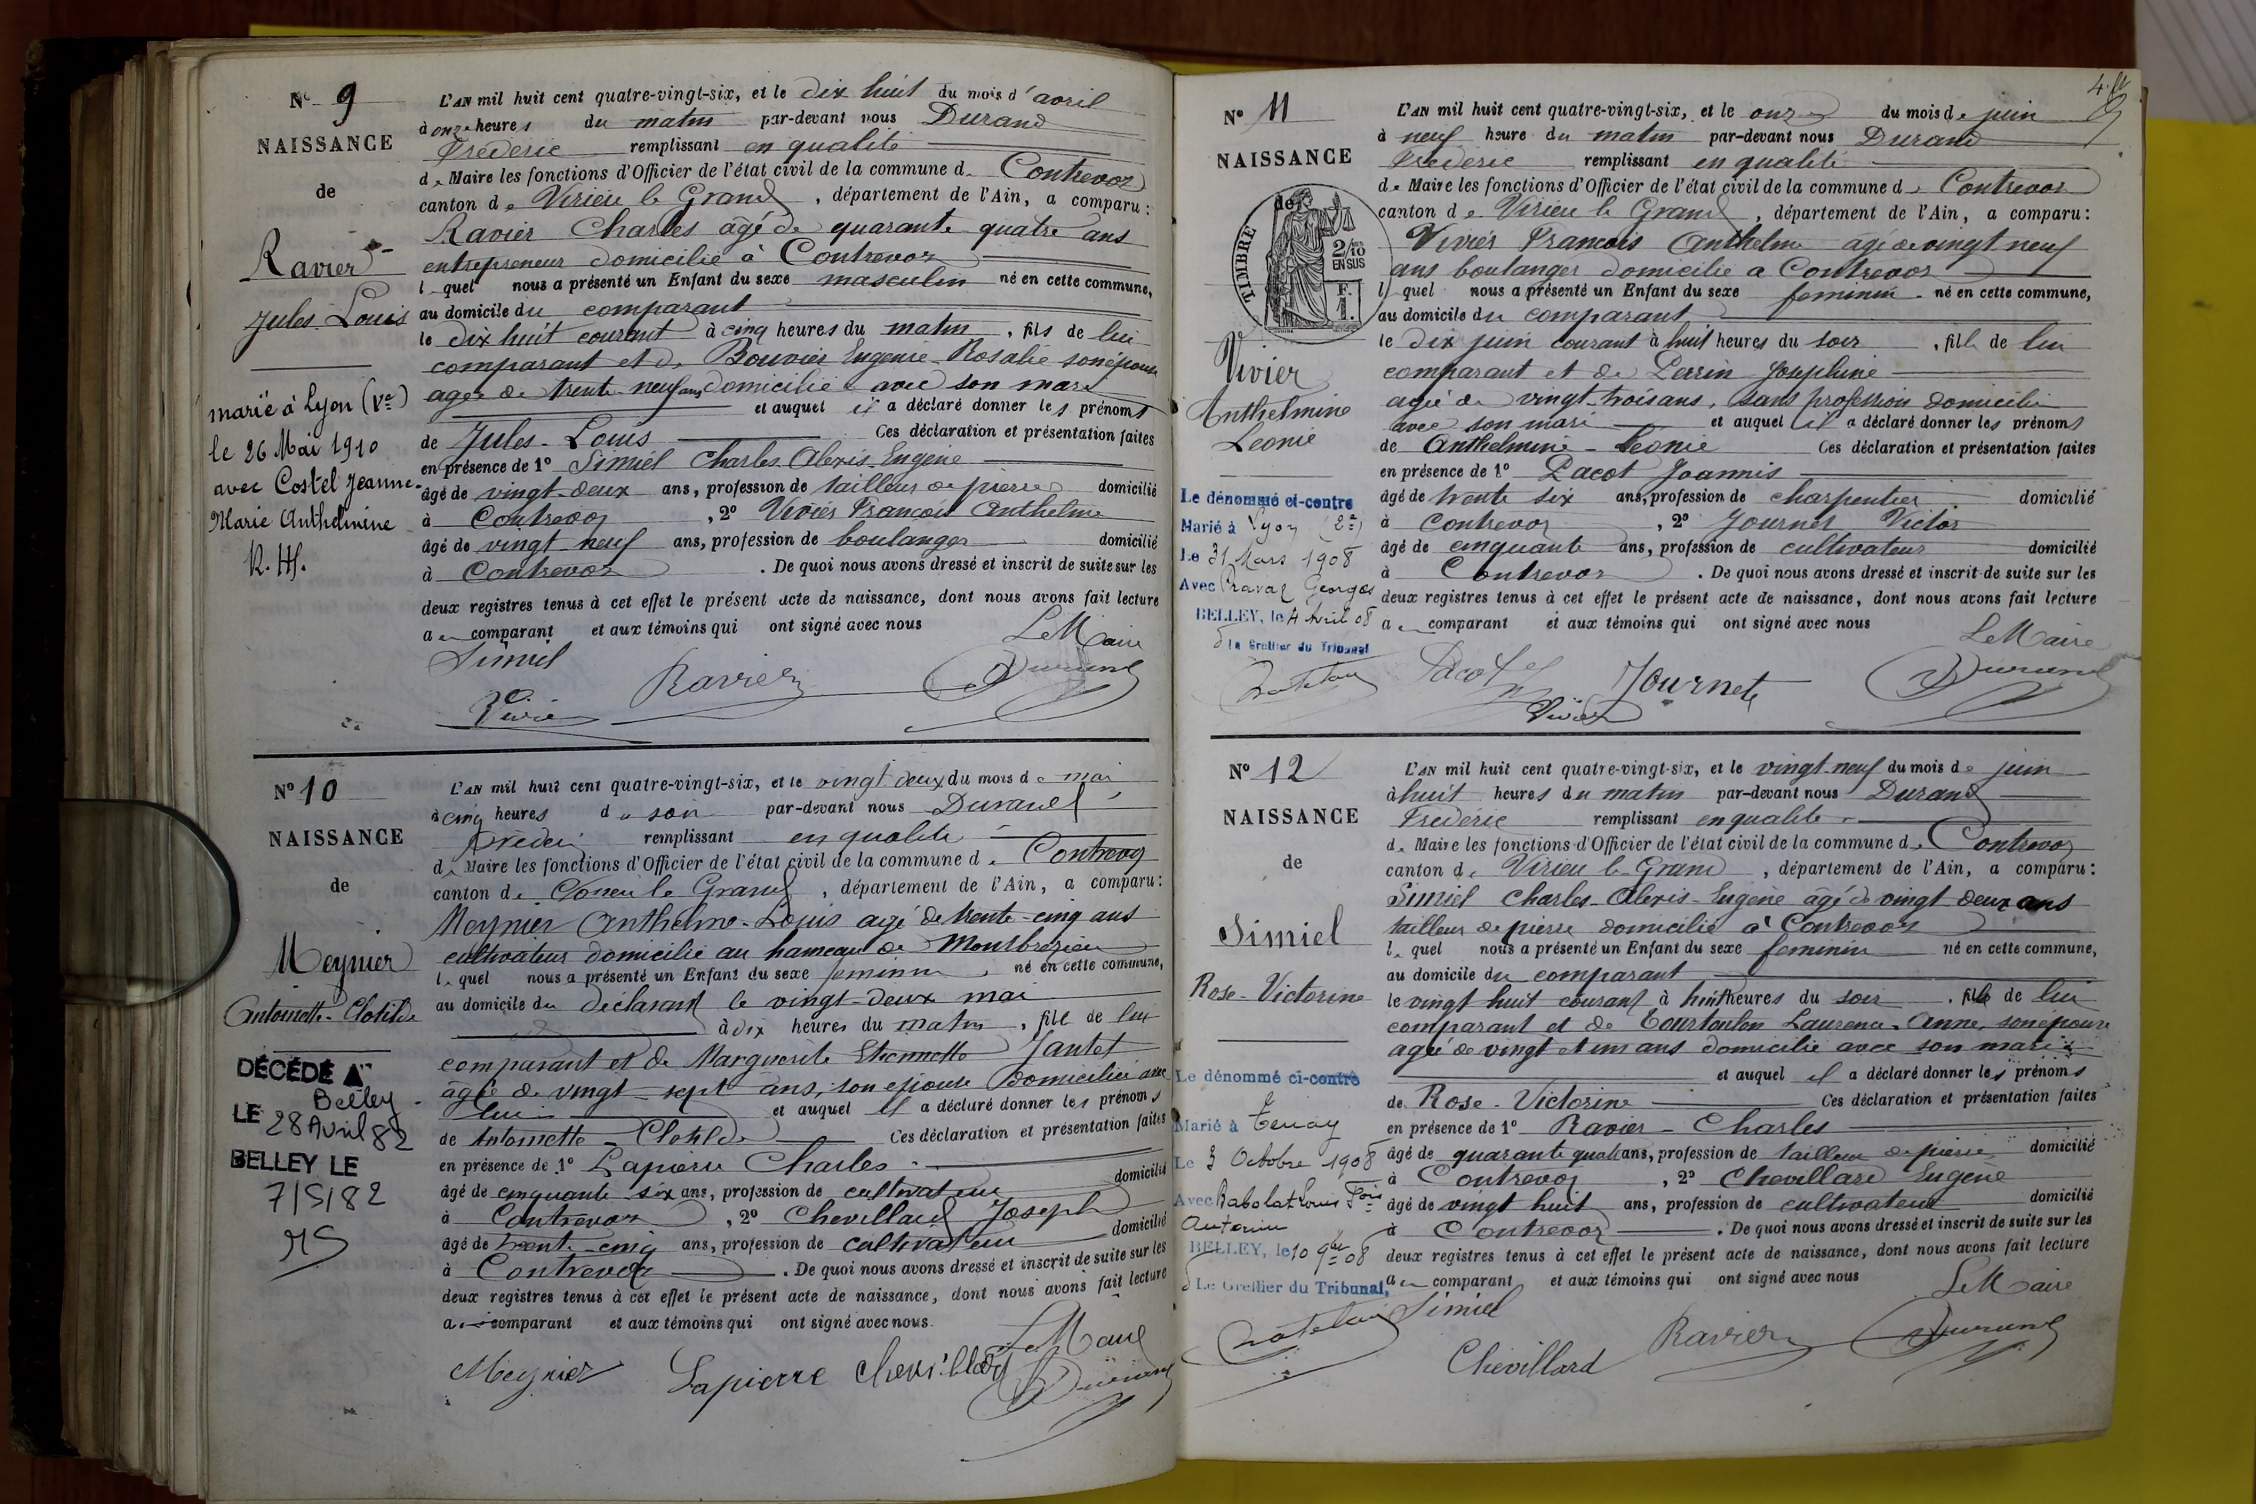 N° 9
NAISSANCE
de
Ravier
Jules Louis
marié à Lyon (Ve)
le 26 Mai 1910
avec Costel Jeanne
Marie Anthelmine
L'AN mil huit cent quatre-vingt-six, et le dix huit du mois d'avril
à onze heures du matin par-devant nous Durand
Frédéric remplissant en qualité
de Maire les fonctions d'Officier de l'état civil de la commune de Contrevoz
canton de Virieu le Grand, département de l'Ain, a comparu:
Ravier Charles âgé de quarante quatre ans
entrepreneur domicilié à Contrevoz
lequel nous a présenté un Enfant du sexe masculin né en cette commune,
au domicile du comparant
le dix huit courant à cinq heures du matin, fils de lui
comparant et de Bouvier Eugenie Rosalie son épouse
agée de trente-neuf ans domiciliée avec son mari
et auquel il a déclaré donner les prénoms
de Jules-Louis Ces déclaration et présentation faites
en présence de 1° Simiel Charles Alexis Eugene
âgé de vingt-deux ans, profession de tailleur de pierres domicilié
à Contrevoz, 2° Vivier François Anthelme
âgé de vingt neuf ans, profession de boulanger domicilié
à Contrevoz. De quoi nous avons dressé et inscrit de suite sur les
deux registres tenus à cet effet le présent acte de naissance, dont nous avons fait lecture
au comparant et aux témoins qui ont signé avec nous
Le Maire
Simiel
Ravier
Durand
Vivier
N° 10
NAISSANCE
de
Meynier
Antoinette-Clotilde
DÉCÉDÉ A
Belley
LE 28 Avril 82
BELLEY LE
7/5/82
L'AN mil huit cent quatre-vingt-six, et le vingt deux du mois de mai
à cinq heures du soir par-devant nous Durand
Frédéric remplissant en qualité
de Maire les fonctions d'Officier de l'état civil de la commune de Contrevoz
canton de Virieu le Grand, département de l'Ain, a comparu:
Meynier Anthelme-Louis agé de trente-cinq ans
cultivateur domicilié au hameau de Montbrezieu
lequel nous a présenté un Enfant du sexe feminin né en cette commune,
au domicile du déclarant le vingt-deux mai
à dix heures du matin, fille de lui
comparant et de Marguerite Etiennette Jantet
âgée de vingt-sept ans, son épouse domiciliée avec
lui et auquel il a déclaré donner les prénoms
de Antoinette-Clotilde Ces déclaration et présentation faites
en présence de 1° Lapierre Charles
âgé de cinquante-six ans, profession de cultivateur domicilié
à Contrevoz, 2° Chevillard Joseph
âgé de trente-cinq ans, profession de cultivateur domicilié
à Contrevoz. De quoi nous avons dressé et inscrit de suite sur les
deux registres tenus à cet effet le présent acte de naissance, dont nous avons fait lecture
au comparant et aux témoins qui ont signé avec nous.
Le Maire
Meynier Lapierre Chevillard Durand
N° 11
NAISSANCE
de
TIMBRE
2/10
EN SUS
F.
1.
Vivier
Anthelmine
Leonie
Le dénommé ci-contre
Marié à Lyon (2e)
Le 31 Mars 1908
Avec Pravaz Georges
BELLEY, le 4 Avril 08
Le Greffier du Tribunal
L'AN mil huit cent quatre-vingt-six, et le onze du mois de juin
à neuf heure du matin par-devant nous Durand
Frédéric remplissant en qualité
de Maire les fonctions d'Officier de l'état civil de la commune de Contrevoz
canton de Virieu le Grand, département de l'Ain, a comparu:
Vivier François Anthelme agé de vingt neuf
ans boulanger domicilié a Contrevoz
lequel nous a présenté un Enfant du sexe feminin né en cette commune,
au domicile du comparant
le dix juin courant à huit heures du soir, fille de lui
comparant et de Perrin Josephine
agée de vingt-trois ans, sans profession domiciliée
avec son mari et auquel il a déclaré donner les prénoms
de Anthelmine-Leonie Ces déclaration et présentation faites
en présence de 1° Pacot Joannis
âgé de trente six ans, profession de charpentier domicilié
à Contrevoz, 2° Journet Victor
âgé de cinquante ans, profession de cultivateur domicilié
à Contrevoz. De quoi nous avons dressé et inscrit de suite sur les
deux registres tenus à cet effet le présent acte de naissance, dont nous avons fait lecture
au comparant et aux témoins qui ont signé avec nous
Le Maire
Pacot Journet Durand
Vivier
N° 12
NAISSANCE
de
Simiel
Rose-Victorine
Le dénommé ci-contre
Marié à Tenay
Le 3 Octobre 1908
Avec Rabolat Louis Fois
Antonin
BELLEY, le 10 9bre 08
Le Greffier du Tribunal,
L'AN mil huit cent quatre-vingt-six, et le vingt-neuf du mois de juin
à huit heures du matin par-devant nous Durand
Frédéric remplissant en qualité
de Maire les fonctions d'Officier de l'état civil de la commune de Contrevoz
canton de Virieu le Grand, département de l'Ain, a comparu:
Simiel Charles-Alexis-Eugène âgé de vingt deux ans
tailleur de pierre domicilié à Contrevoz
lequel nous a présenté un Enfant du sexe feminin né en cette commune,
au domicile du comparant
le vingt huit courant à huit heures du soir, fille de lui
comparant et de Tourtoulon Laurence-Anne, son épouse
agée de vingt et un ans domiciliée avec son mari
et auquel il a déclaré donner les prénoms
de Rose-Victorine Ces déclaration et présentation faites
en présence de 1° Ravier-Charles
âgé de quarante quatre ans, profession de tailleur de pierre domicilié
à Contrevoz, 2° Chevillard Eugène
âgé de vingt huit ans, profession de cultivateur domicilié
à Contrevoz. De quoi nous avons dressé et inscrit de suite sur les
deux registres tenus à cet effet le présent acte de naissance, dont nous avons fait lecture
au comparant et aux témoins qui ont signé avec nous
Le Maire
Simiel
Chevillard Ravier Durand